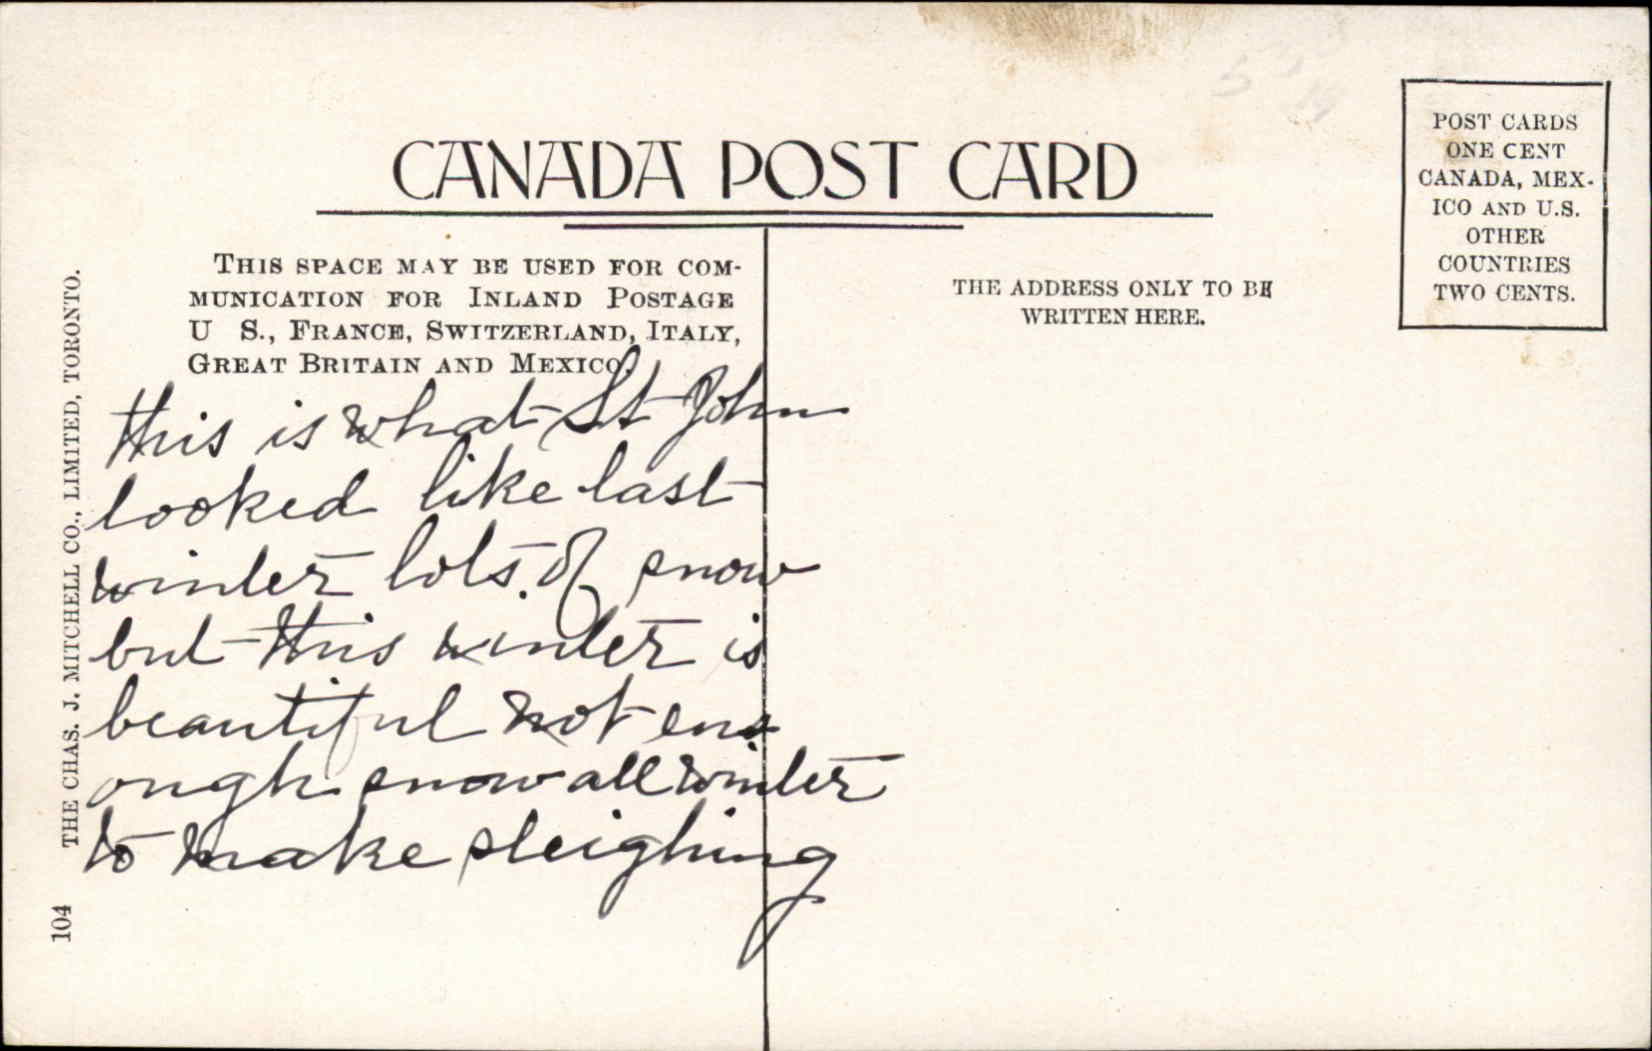 CANADA POST CARD
THIS SPACE MAY BE USED FOR COM-
MUNICATION FOR INLAND POSTAGE
U S., FRANCE, SWITZERLAND, ITALY,
GREAT BRITAIN AND MEXICO.
THE ADDRESS ONLY TO BE
WRITTEN HERE.
POST CARDS
ONE CENT
CANADA, MEX-
ICO AND U.S.
OTHER
COUNTRIES
TWO CENTS.
this is what St John
looked like last
winter lots of snow
but this winter is
beautiful not en
ough snow all winter
to make sleighing
THE CHAS. J. MITCHELL CO., LIMITED, TORONTO.
104